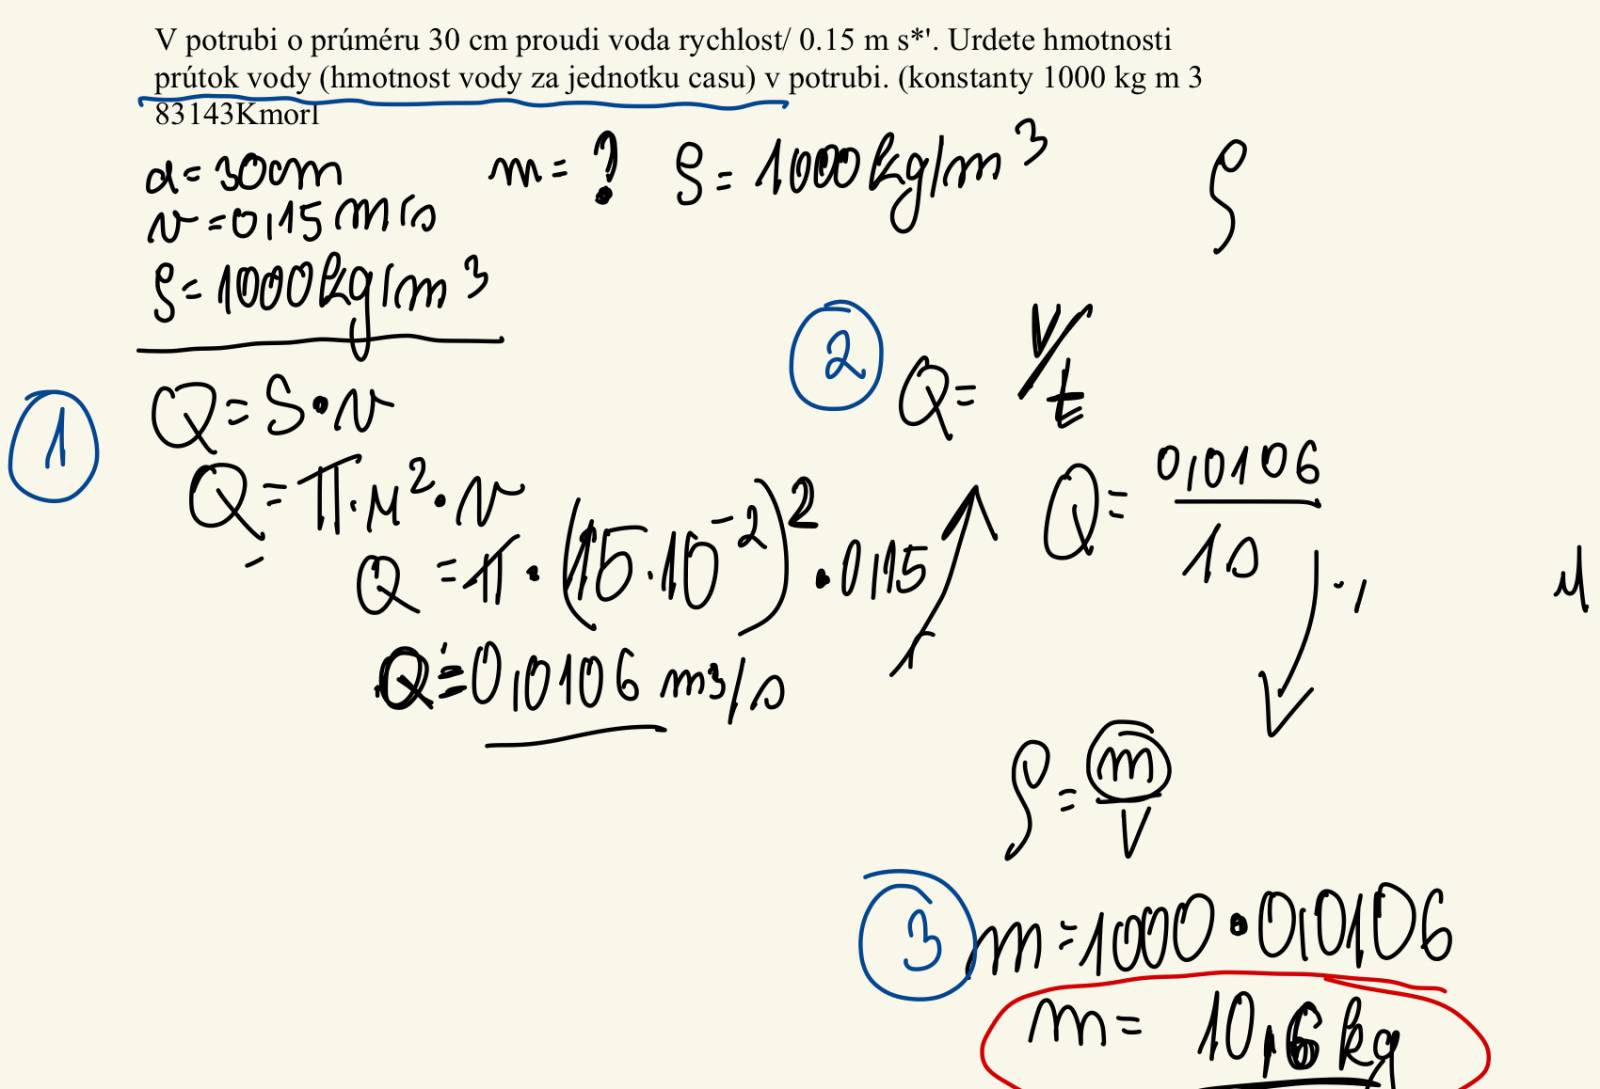 V potrubi o prúméru 30 cm proudi voda rychlost/ 0.15 m s*'. Urdete hmotnosti
prútok vody (hmotnost vody za jednotku casu) v potrubi. (konstanty 1000 kg m 3
83143Kmorl
d=30cm
m=?
ρ=1000kg/m³
ρ
v=0,15m/s
ρ=1000kg/m³
1
Q=S·v
2
Q=V/t
Q=π·r²·v
=
Q=π·(15·10⁻²)²·0,15
Q≐0,0106 m³/s
Q=0,0106/1s
ρ=m/V
3
m=1000·0,0106
m=10,6kg